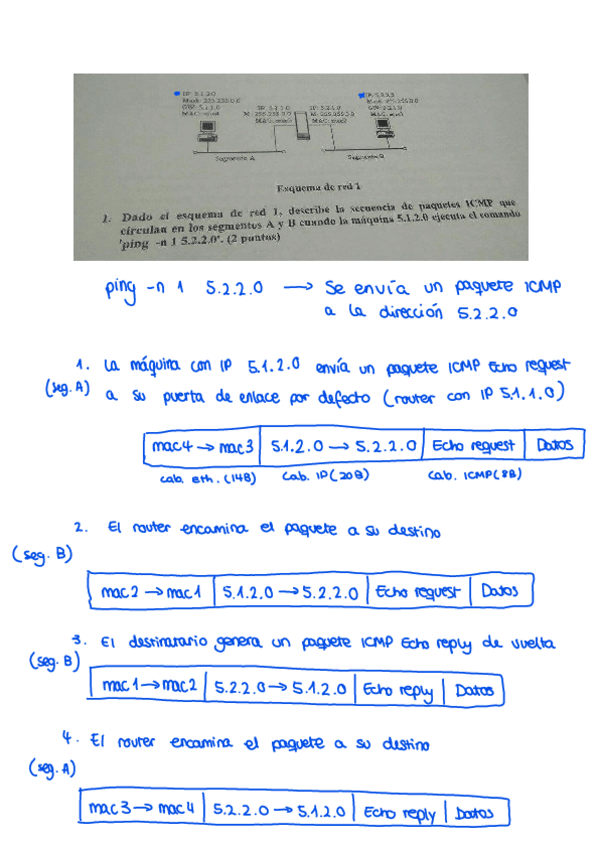 IP: 5.1.2.0
Mask: 255.255.0.0
GW: 5.1.1.0
MAC: mac4
IP: 5.1.1.0
M: 255.255.0.0
MAC: mac3
IP: 5.2.1.0
M: 255.255.0.0
MAC: mac2
Mask: 255.255.0.0
GW: 5.2.1.0
MAC: mac1
Segmento A
Segmento B
Esquema de red 1
1. Dado el esquema de red 1, describe la secuencia de paquetes ICMP que
circulan en los segmentos A y B cuando la máquina 5.1.2.0 ejecuta el comando
'ping -n 1 5.2.2.0'. (2 puntos)
ping -n 1 5.2.2.0 → Se envía un paquete ICMP
a la dirección 5.2.2.0
1. La máquina con IP 5.1.2.0 envía un paquete ICMP Echo request
(seg. A) a su puerta de enlace por defecto (router con IP 5.1.1.0)
mac4 → mac3 | 5.1.2.0 → 5.2.2.0 | Echo request | Datos
cab. eth. (14B) Cab. IP (20B) Cab. ICMP (8B)
2. El router encamina el paquete a su destino
(seg. B)
mac2 → mac1 | 5.1.2.0 → 5.2.2.0 | Echo request | Datos
3. El destinatario genera un paquete ICMP Echo reply de vuelta
(seg. B)
mac1 → mac2 | 5.2.2.0 → 5.1.2.0 | Echo reply | Datos
4. El router encamina el paquete a su destino
(seg. A)
mac3 → mac4 | 5.2.2.0 → 5.1.2.0 | Echo reply | Datos